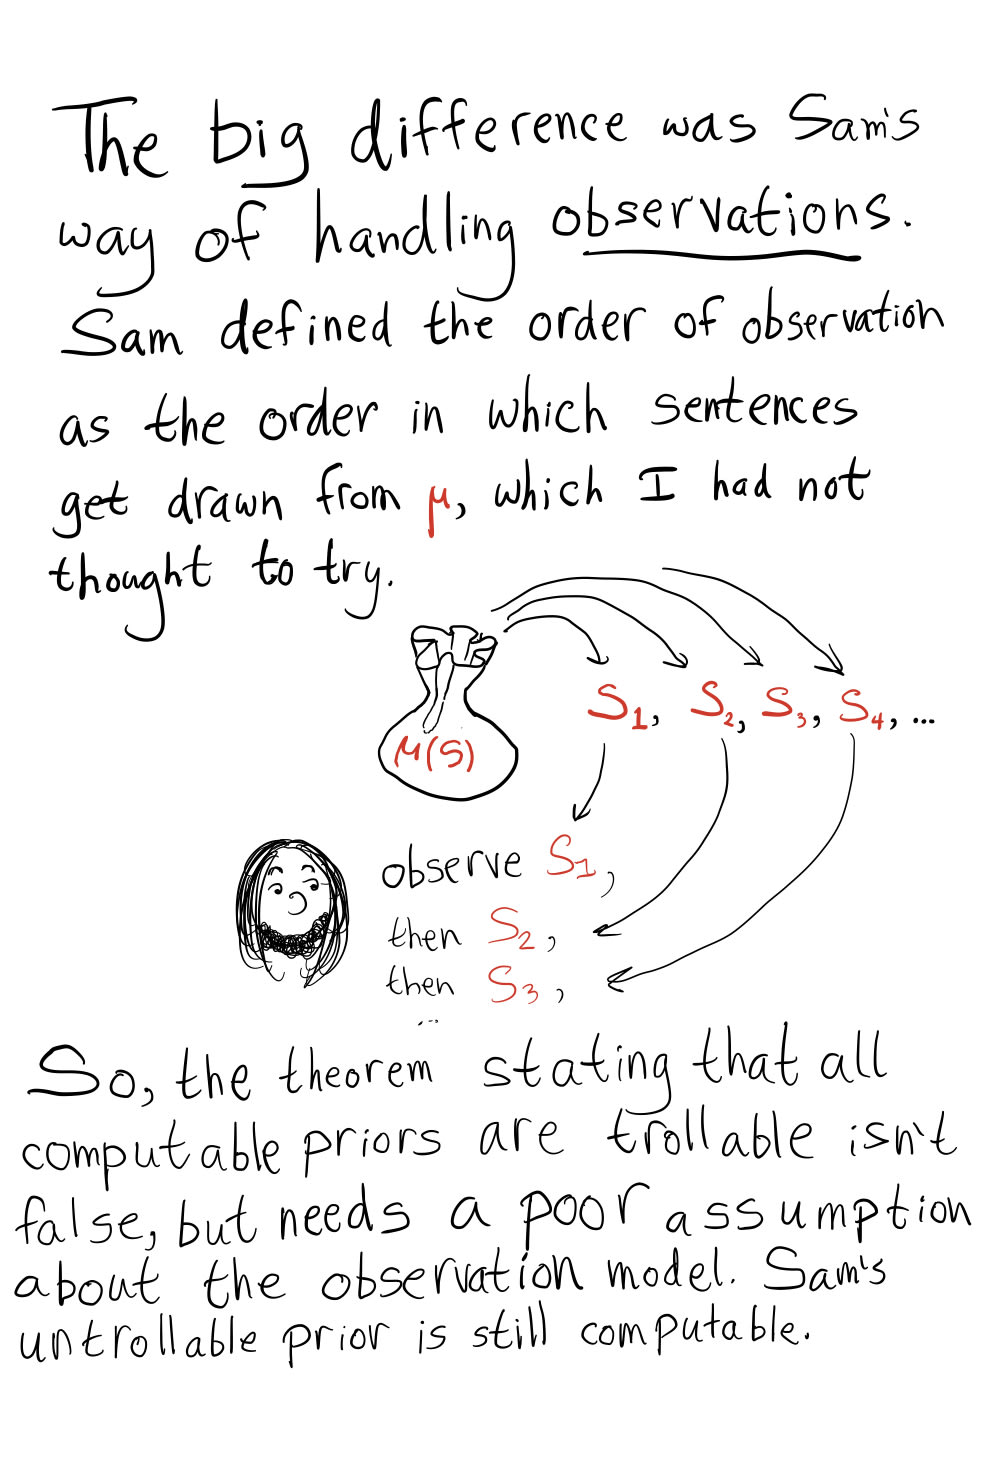 The big difference was Sam's
way of handling observations.
Sam defined the order of observation
as the order in which sentences
get drawn from μ, which I had not
thought to try.
S1, S2, S3, S4, ...
μ(S)
observe S1,
then S2,
then S3,
...
So, the theorem stating that all
computable priors are trollable isn't
false, but needs a poor assumption
about the observation model. Sam's
untrollable prior is still computable.